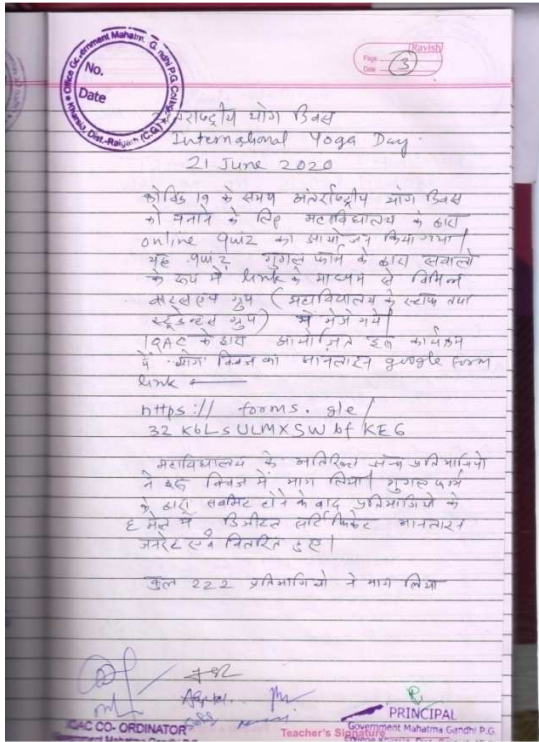 Office Government Mahatma Gandhi P.G. College
No.
Date
Kharsia, Dist.-Raigarh (C.G.)
Ravish
Page 3
Date
अंतर्राष्ट्रीय योग दिवस
International Yoga Day.
21 June 2020
कोविड 19 के समय अंतर्राष्ट्रीय योग दिवस
को मनाने के लिए महाविद्यालय के द्वारा
online quiz का आयोजन किया गया|
यह quiz गुगल फॉर्म के द्वारा सवालो
के रूप में link के माध्यम से विभिन्न
वाट्सएप ग्रुप (महाविद्यालय के स्टॉफ तथा
स्टूडेन्ट्स ग्रुप) में भेजे गये|
IQAC के द्वारा आयोजित इस कार्यक्रम
में योग क्विज का आनलाइन google form
link
https:// forms. gle/
32 KbLsULMXSWbfKEG
महाविद्यालय के अतिरिक्त अन्य प्रतिभागियो
ने इस क्विज में भाग लिया| गुगल फार्म
के द्वारा सबमिट होने के बाद प्रतिभागियो के
ई मेल में डिजीटल सर्टिफिकेट आनलाइन
जनरेट एवं वितरित हुए|
कुल 222 प्रतिभागियो ने भाग लिया
IQAC CO- ORDINATOR
Teacher's Signature
PRINCIPAL
Government Mahatma Gandhi P.G.